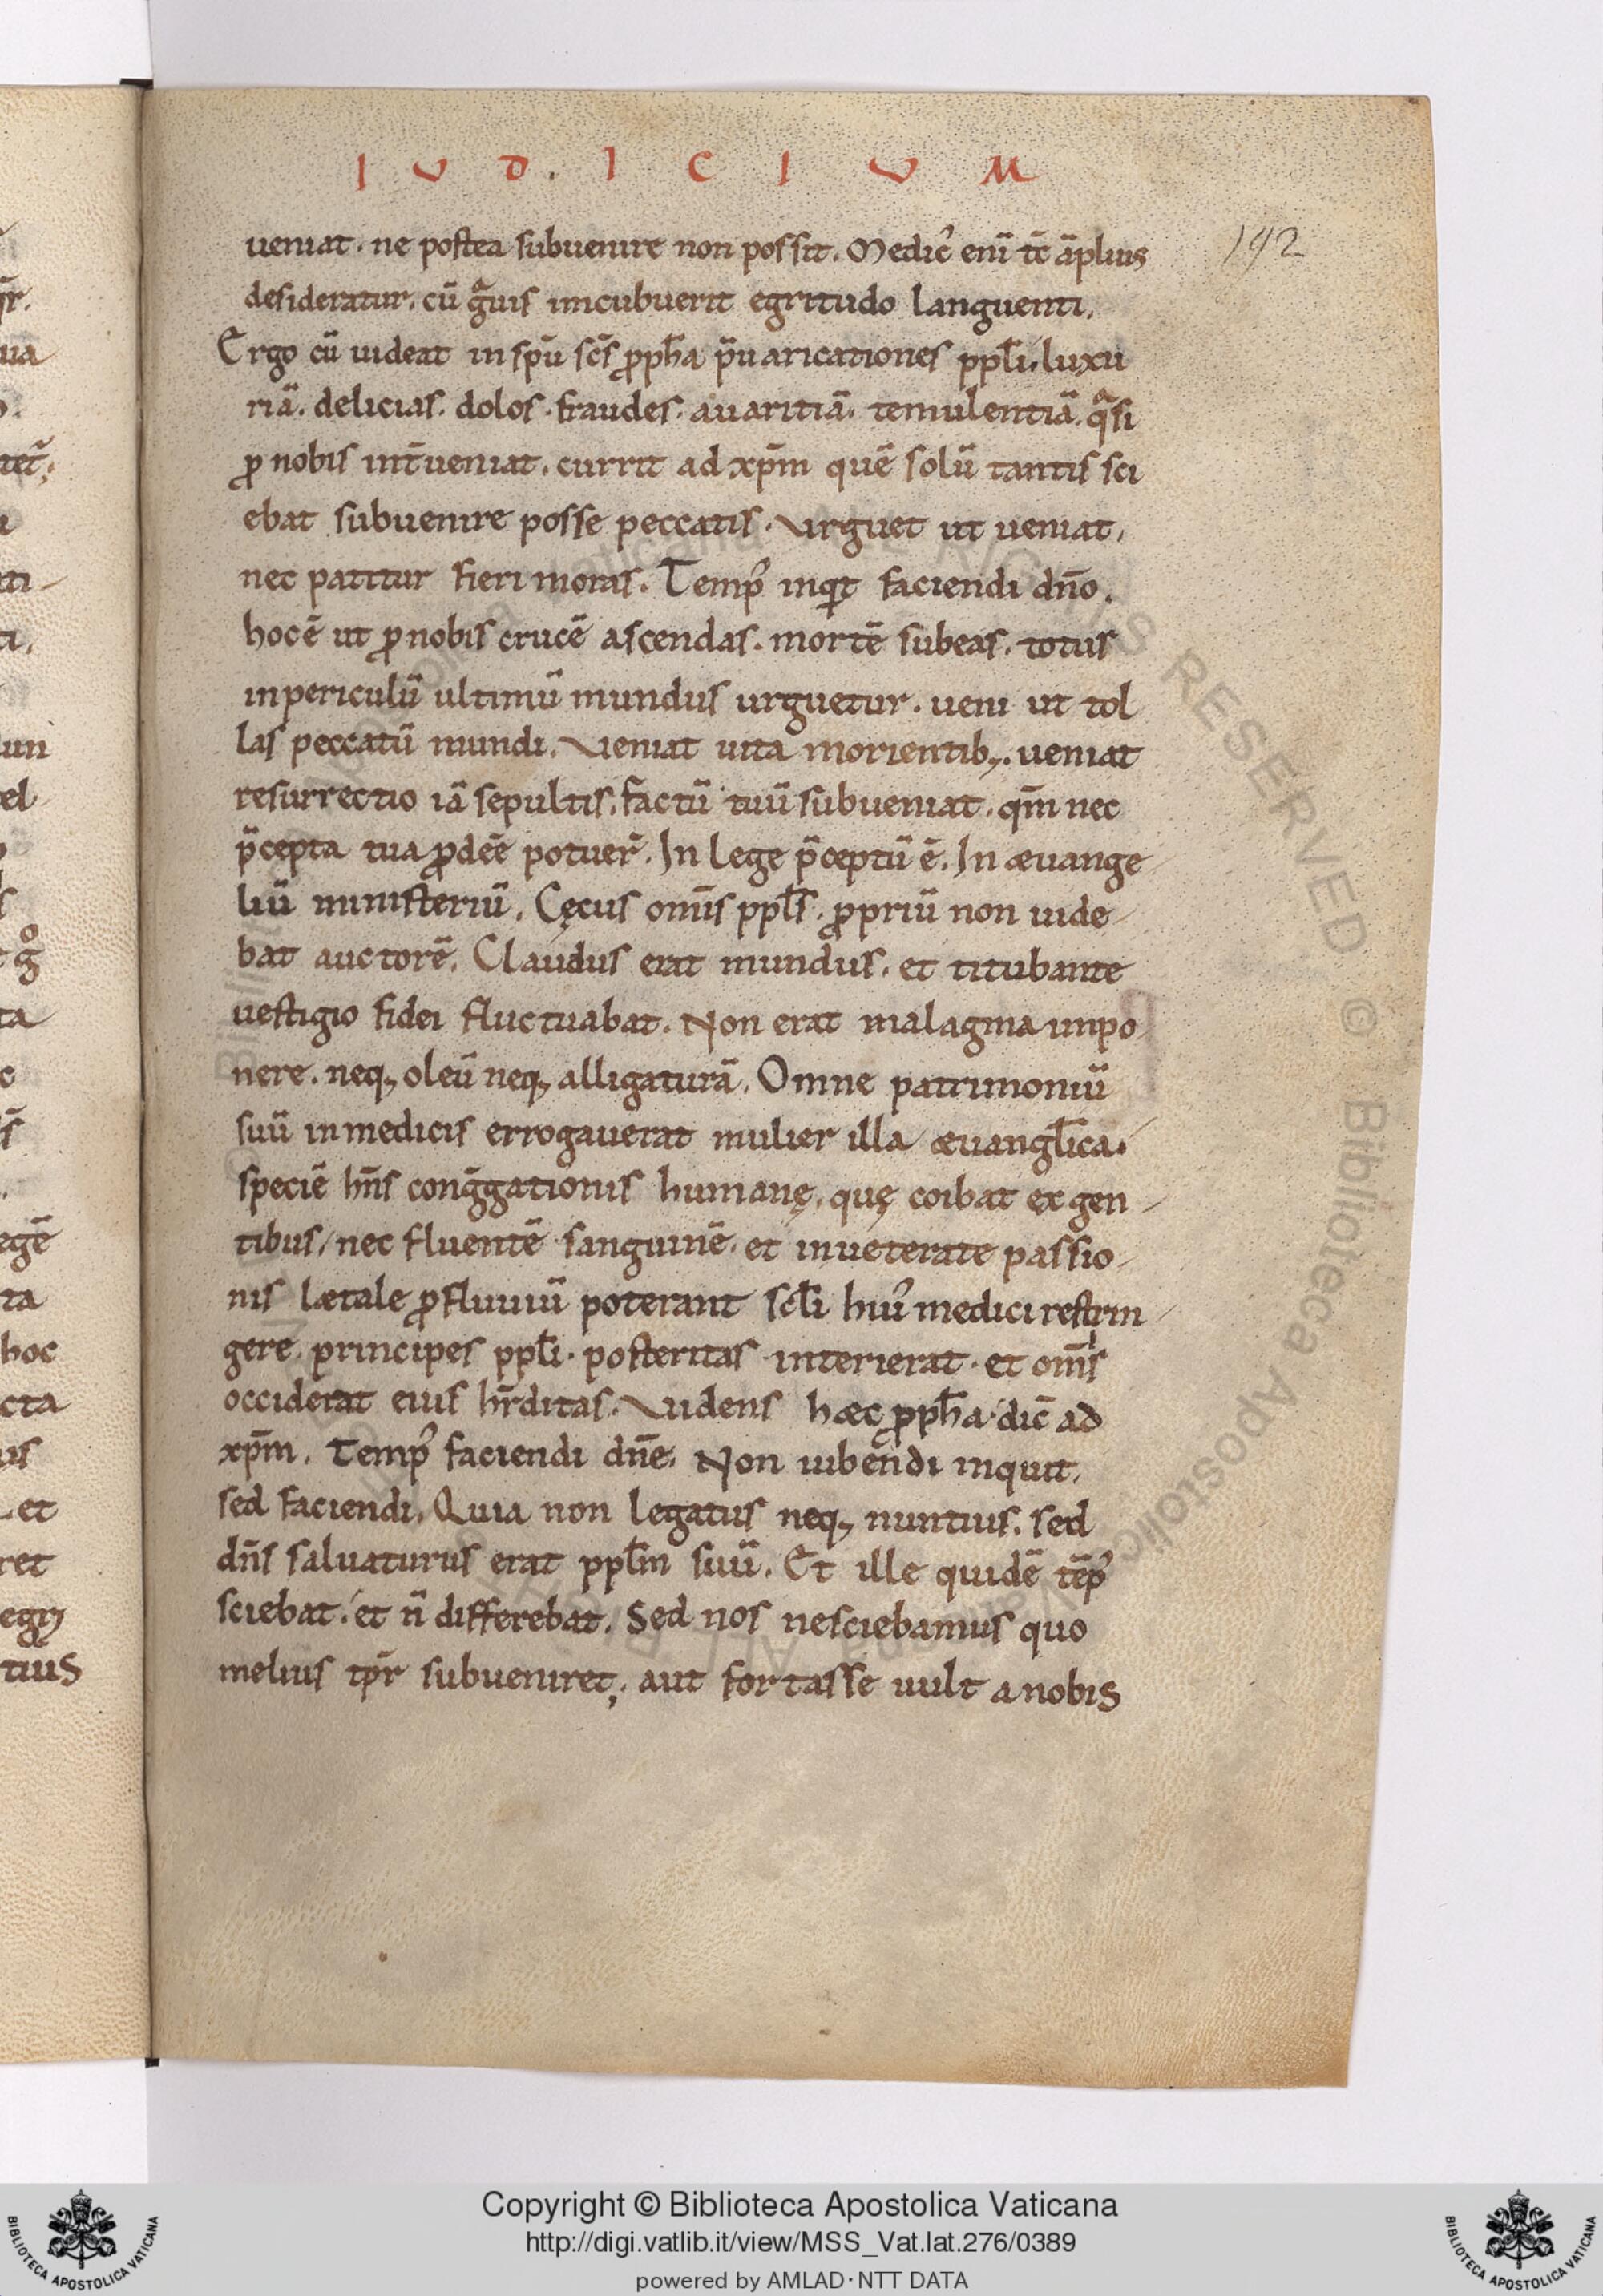 I U D . I C I U M
192
ueniat. ne postea subuenire non possit. Medic᾽ eni᷒ tc̄ āplius
desideratur. cū gͣuis incubuerit egritudo languenti.
Ergo cū uideat in spū sc̄s ꝓph̄a p̄uaricationes ppl̄i. luxu
riā. delicias. dolos. fraudes. auaritiā. temulentiā. qͣsi
ꝓ nobis int̄ueniat. currit ad xp̄m quē solū tantis sci
ebat subuenire posse peccatis. Vrguet ut ueniat,
nec patitur fieri moras. Temp᾽ inqͥt faciendi dn̄o.
hoc ē ut ꝓ nobis crucē ascendas. mortē subeas. totus
in periculū ultimū mundus urguetur. ueni ut tol
las peccatū mundi. Veniat uita morientibꝫ. ueniat
resurrectio iā sepultis. factū tuū subueniat. qm̄ nec
p̄cepta tua ꝓdēe potuer̄. In lege p̄ceptū ē. In æuange
liū ministeriū. Cęcus om̄is ppl̄s. ꝓpriū non uide
bat auctorē. Claudus erat mundus. et titubante
uestigio fidei fluctuabat. Non erat malagma inpo
nere. neqꝫ oleū neqꝫ alligaturā. Omne patrimoniū
suū in medicis errogauerat mulier illa æuangl̄ica.
speciē hn̄s congḡationis humanę. quę coibat ex gen
tibus, nec fluentē sanguinē. et inueterate passio
nis lætale ꝓfluuiū poterant scl̄i hui᾽ medici restrin
gere. principes ppl̄i. posteritas interierat. et om̄is
occiderat eius hr̄ditas. Videns hæc ꝓph̄a dic̄ ad
xp̄m. Temp᾽ faciendi dn̄e. Non iubendi inquit.
sed faciendi. Quia non legatus neqꝫ nuntius. sed
dn̄s saluaturus erat ppl̄m suū. Et ille quidē tēp᾽
sciebat. et n̄ differebat. Sed nos nesciebamus quo
melius tp̄r subueniret; aut fortasse uult a nobis
Copyright © Biblioteca Apostolica Vaticana
http://digi.vatlib.it/view/MSS_Vat.lat.276/0389
powered by AMLAD·NTT DATA
BIBLIOTECA APOSTOLICA VATICANA
BIBLIOTECA APOSTOLICA VATICANA